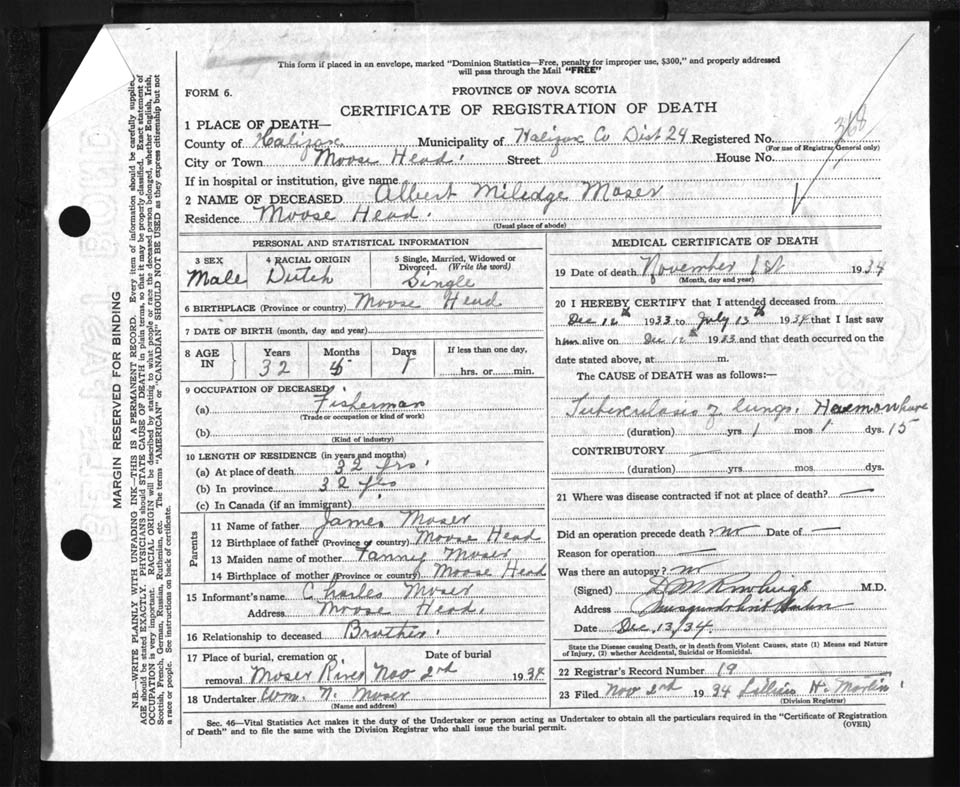 This form if placed in an envelope, marked "Dominion Statistics—Free, penalty for improper use, $300," and properly addressed
will pass through the Mail "FREE"
FORM 6.
PROVINCE OF NOVA SCOTIA
CERTIFICATE OF REGISTRATION OF DEATH
368
1 PLACE OF DEATH—
County of Halifax Municipality of Halifax Co Dist 24 Registered No.
(For use of Registrar General only)
City or Town Moose Head. Street House No.
If in hospital or institution, give name
2 NAME OF DECEASED Albert Miledge Moser
Residence Moose Head.
(Usual place of abode)
PERSONAL AND STATISTICAL INFORMATION
3 SEX
Male
4 RACIAL ORIGIN
Dutch
5 Single, Married, Widowed or
Divorced. (Write the word)
Single
6 BIRTHPLACE (Province or country) Moose Head
7 DATE OF BIRTH (month, day and year)
8 AGE IN
Years Months Days
32
If less than one day,
hrs. or min.
9 OCCUPATION OF DECEASED
(a) Fisherman
(Trade or occupation or kind of work)
(b)
(Kind of industry)
10 LENGTH OF RESIDENCE (in years and months)
(a) At place of death 32 yrs.
(b) In province 32 yrs
(c) In Canada (if an immigrant)
Parents
11 Name of father James Moser
12 Birthplace of father (Province or country) Moose Head
13 Maiden name of mother Fanny Moser
14 Birthplace of mother (Province or country) Moose Head
15 Informant's name Charles Moser
Address Moose Head.
16 Relationship to deceased Brother.
17 Place of burial, cremation or Date of burial
removal Moser River Nov 2nd 1934
18 Undertaker Wm. N. Moser
(Name and address)
MEDICAL CERTIFICATE OF DEATH
19 Date of death November 1st 1934
(Month, day and year)
20 I HEREBY CERTIFY that I attended deceased from
Dec 12th 1933 to July 13th 1934 that I last saw
him alive on Dec 12th 1933 and that death occurred on the
date stated above, at m.
The CAUSE of DEATH was as follows:—
Tuberculosis of lungs. Haemorrhage
(duration) yrs 1 mos 1 dys. 15
CONTRIBUTORY
(duration) yrs. mos. dys.
21 Where was disease contracted if not at place of death?
Did an operation precede death? no Date of
Reason for operation
Was there an autopay? no
(Signed) D M Rowlings M.D.
Address Musquodoboit Harbor
Date Dec 13/34.
State the Disease causing Death, or in death from Violent Causes, state (1) Means and Nature
of Injury, (2) whether Accidental, Suicidal or Homicidal.
22 Registrar's Record Number 19
23 Filed Nov 2nd 1934 Lillian H.
(Division Registrar)
Sec. 46—Vital Statistics Act makes it the duty of the Undertaker or person acting as Undertaker to obtain all the particulars required in the "Certificate of Registration
of Death" and to file the same with the Division Registrar who shall issue the burial permit.
(OVER)
MARGIN RESERVED FOR BINDING
N.B.—WRITE PLAINLY WITH UNFADING INK—THIS IS A PERMANENT RECORD. Every item of information should be carefully supplied.
AGE should be stated EXACTLY. PHYSICIANS should STATE CAUSE OF DEATH in plain terms, so that it may be properly classified. Exact statement of
OCCUPATION is very important. RACIAL ORIGIN will be described by stating to what people or race the deceased person belonged, whether English, Irish,
Scottish, French, German, Russian, Ruthenian, etc. The terms "AMERICAN" or "CANADIAN" SHOULD NOT BE USED as they express citizenship but not
a race or people. See instructions on back of certificate.